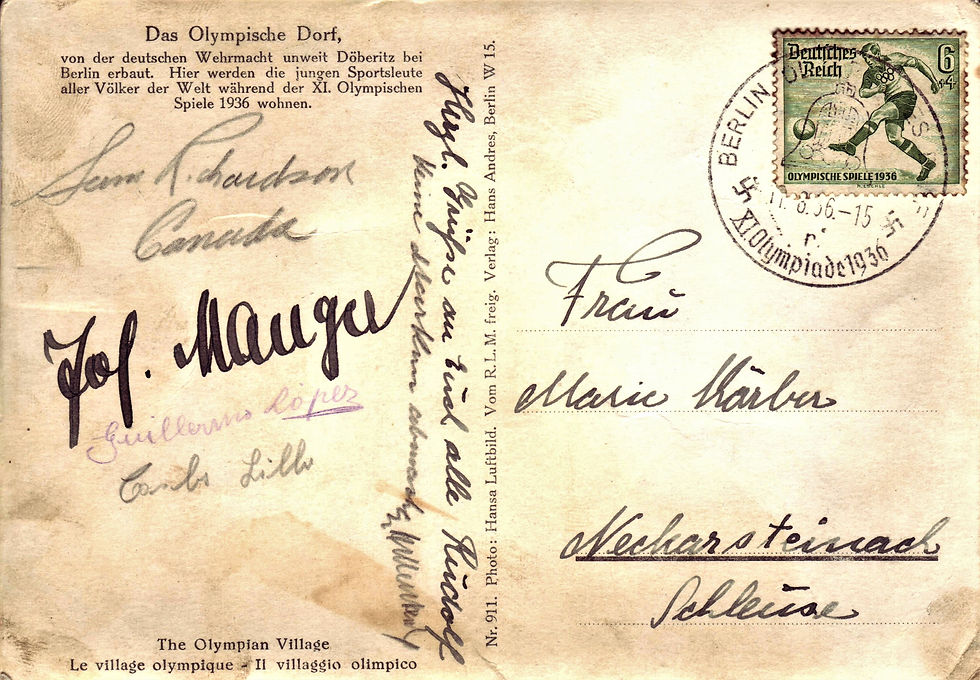 Das Olympische Dorf,
von der deutschen Wehrmacht unweit Döberitz bei
Berlin erbaut. Hier werden die jungen Sportsleute
aller Völker der Welt während der XI. Olympischen
Spiele 1936 wohnen.
Sam Richardson
Canada
Jos. Manger
Guillermo López
Carlos Lillo
The Olympian Village
Le village olympique - Il villaggio olimpico
Herzl. Grüße an Euch alle Rudolf
Nr. 911. Photo: Hansa Luftbild. Vom R.L.M. freig. Verlag: Hans Andres, Berlin W 15.
Deutsches
Reich
6
+4
OLYMPISCHE SPIELE 1936
BERLIN
8.36.-15
XI Olympiade 1936
Frau
Marie Körber
Neckarsteinach
Schleuse